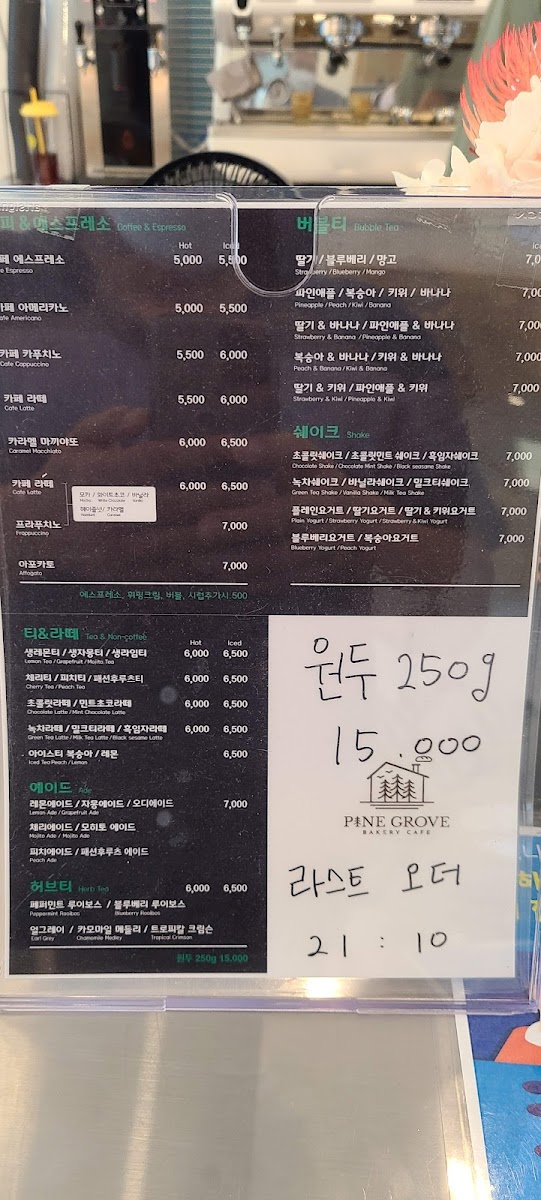 피 & 에스프레소 Coffee & Espresso
Hot Iced
페 에스프레소 5,000 5,500
e Espresso
카페 아메리카노 5,000 5,500
afe Americano
카페 카푸치노 5,500 6,000
Cafe Cappuccino
카페 라떼 5,500 6,000
Cafe Latte
카라멜 마끼야또 6,000 6,500
Caramel Macchiato
카페 라떼 6,000 6,500
Cafe Latte
모카 / 화이트초코 / 바닐라
헤이즐넛 / 카라멜
프라푸치노 7,000
Frappuccino
아포카토 7,000
Affogato
에스프레소, 휘핑크림, 버블, 시럽추가시 500
버블티 Bubble Tea
딸기 / 블루베리 / 망고 7,0
Strawberry / Blueberry / Mango
파인애플 / 복숭아 / 키위 / 바나나 7,00
Pineapple / Peach / Kiwi / Banana
딸기 & 바나나 / 파인애플 & 바나나 7,00
Strawberry & Banana / Pineapple & Banana
복숭아 & 바나나 / 키위 & 바나나 7,000
Peach & Banana / Kiwi & Banana
딸기 & 키위 / 파인애플 & 키위 7,000
Strawberry & Kiwi / Pineapple & Kiwi
쉐이크 Shake
초콜릿쉐이크 / 초콜릿민트 쉐이크 / 흑임자쉐이크 7,000
Chocolate Shake / Chocolate Mint Shake / Black seasame Shake
녹차쉐이크 / 바닐라쉐이크 / 밀크티쉐이크 7,000
Green Tea Shake / Vanilla Shake / Milk Tea Shake
플레인요거트 / 딸기요거트 / 딸기 & 키위요거트 7,000
Plain Yogurt / Strawberry Yogurt / Strawberry & Kiwi Yogurt
블루베리요거트 / 복숭아요거트 7,000
Blueberry Yogurt / Peach Yogurt
티&라떼 Tea & Non-coffee
Hot Iced
생레몬티 / 생자몽티 / 생라임티 6,000 6,500
Lemon Tea / Grapefruit / Mojito Tea
체리티 / 피치티 / 패션후루츠티 6,000 6,500
Cherry Tea / Peach Tea
초콜릿라떼 / 민트초코라떼 6,000 6,500
Chocolate Latte / Mint Chocolate Latte
녹차라떼 / 밀크티라떼 / 흑임자라떼 6,000 6,500
Green Tea Latte / Milk Tea Latte / Black sesame Latte
아이스티 복숭아 / 레몬 6,500
Iced Tea Peach / Lemon
에이드 Ade
레몬에이드 / 자몽에이드 / 오디에이드 7,000
Lemon Ade / Grapefruit Ade
체리에이드 / 모히토 에이드
Mojito Ade / Mojito Ade
피치에이드 / 패션후루츠 에이드
Peach Ade
허브티 Herb Tea 6,000 6,500
페퍼민트 루이보스 / 블루베리 루이보스
Peppermint Rooibos Blueberry Rooibos
얼그레이 / 카모마일 메들리 / 트로피칼 크림슨
Earl Grey Chamomile Medley Tropical Crimson
원두 250g 15,000
원두 250g
15.000
PINE GROVE
BAKERY CAFE
라스트 오더
21 : 10